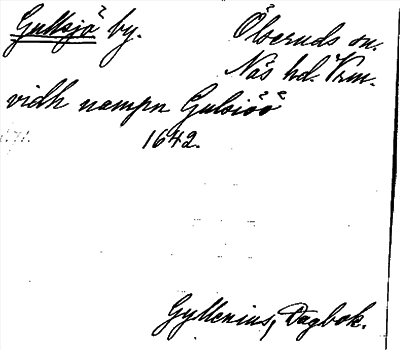 Gullsjö by. Ölseruds sn.
Näs hd. Vrm.
vidh nampn Gulsiöö
1642.
Gyllenius, Dagbok.